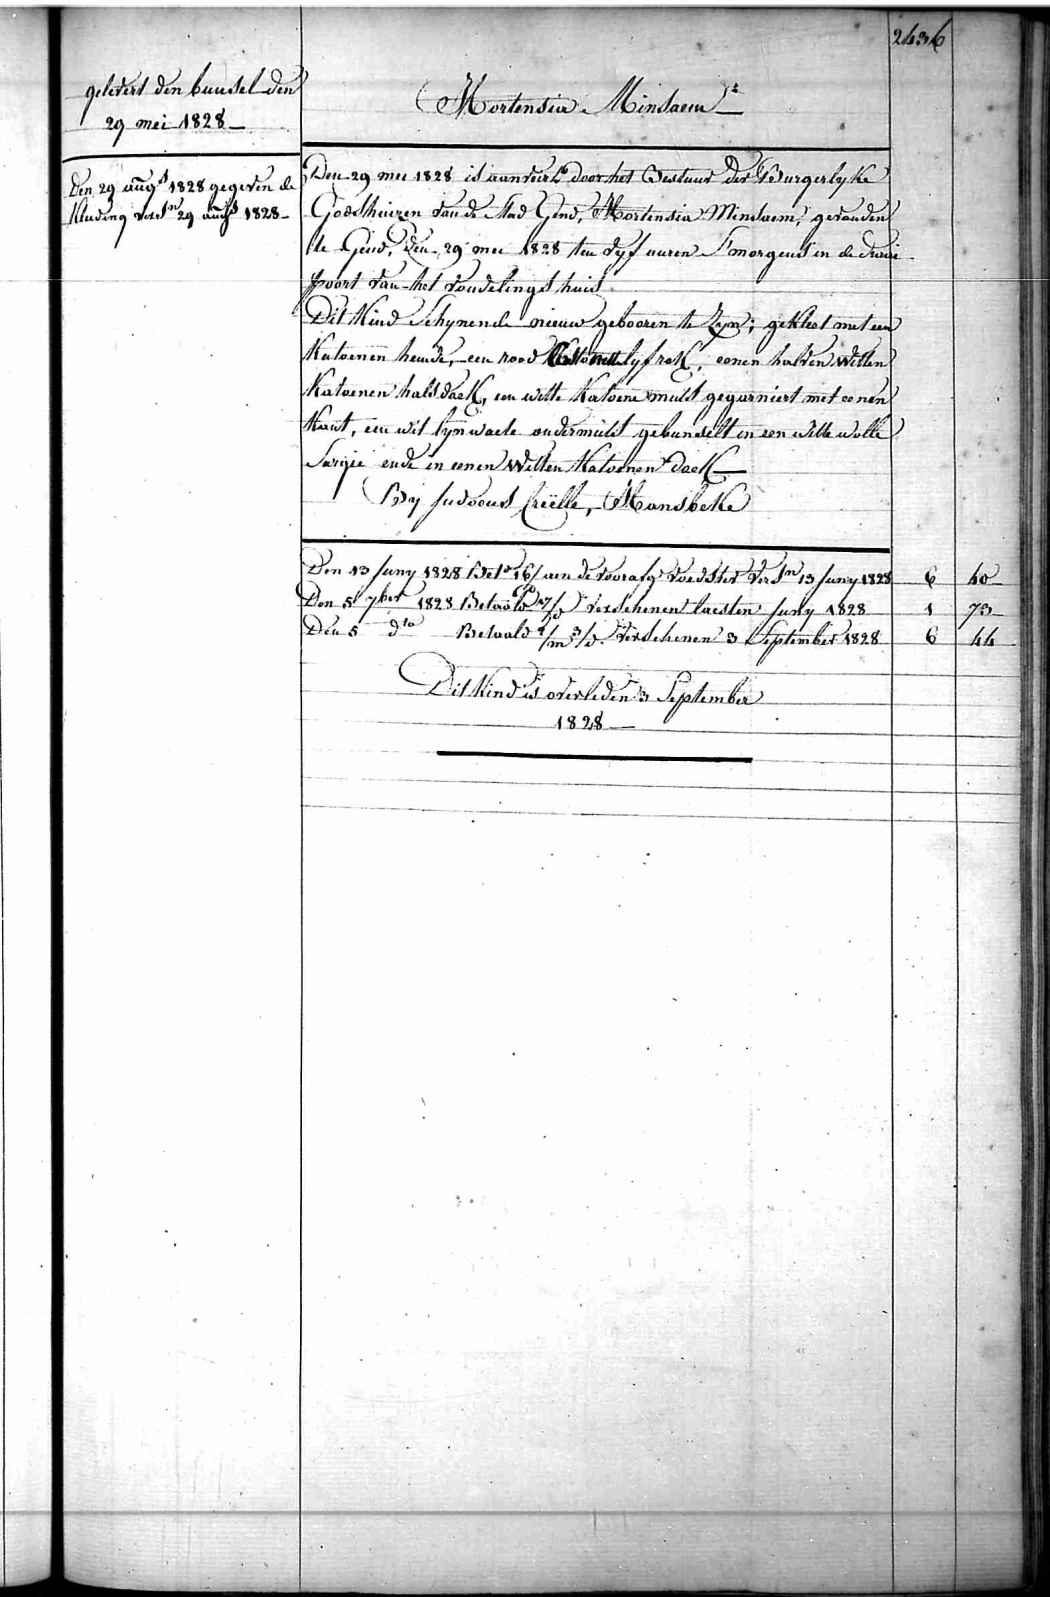 2436
gelevert den bundel den
29 mei 1828
Hortensia Minsaem
Den 29 augs 1828 gegeven de
kleeding versn 29 augs 1828
Den 29 mei 1828 is aanveird door het Bestuur der Burgerlyke
Godshuizen van de stad Gend, Hortensia Minsaem, gevonden
te Gend, den 29 mei 1828 ten vyf uuren s'morgens in de
poort van het vondelings huis.
Dit kind schynende nieuw gebooren te zyn; gekleet met een
katoenen hemde, een rood lyfrok, eenen halven witten
katoenen halsdoek, een witte katoene muts gegarniert met eenen
kant, een wit lynwaete ondermuts gebundelt in een witte wolle
sargie ende in eenen witten katoenen doek
By Judocus, Mansbeke
Den 13 juny 1828 Bete 16/ aen de voorafge voedster versn 13 juny 1828 6 40
Den 5 7ber 1828 Betaald 17/d verschenen laesten juny 1828 1 73
Den 5 dto Betaald 2/m 3/d. verschenen 3 September 1828 6 44
Dit kind is overleden 3 September
1828